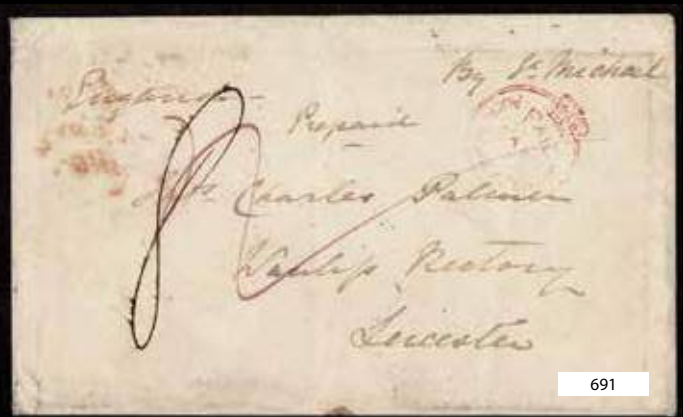 By St Michael
England
Prepaid
Mrs Charles Palmer
Wanlip Rectory
Leicester
691